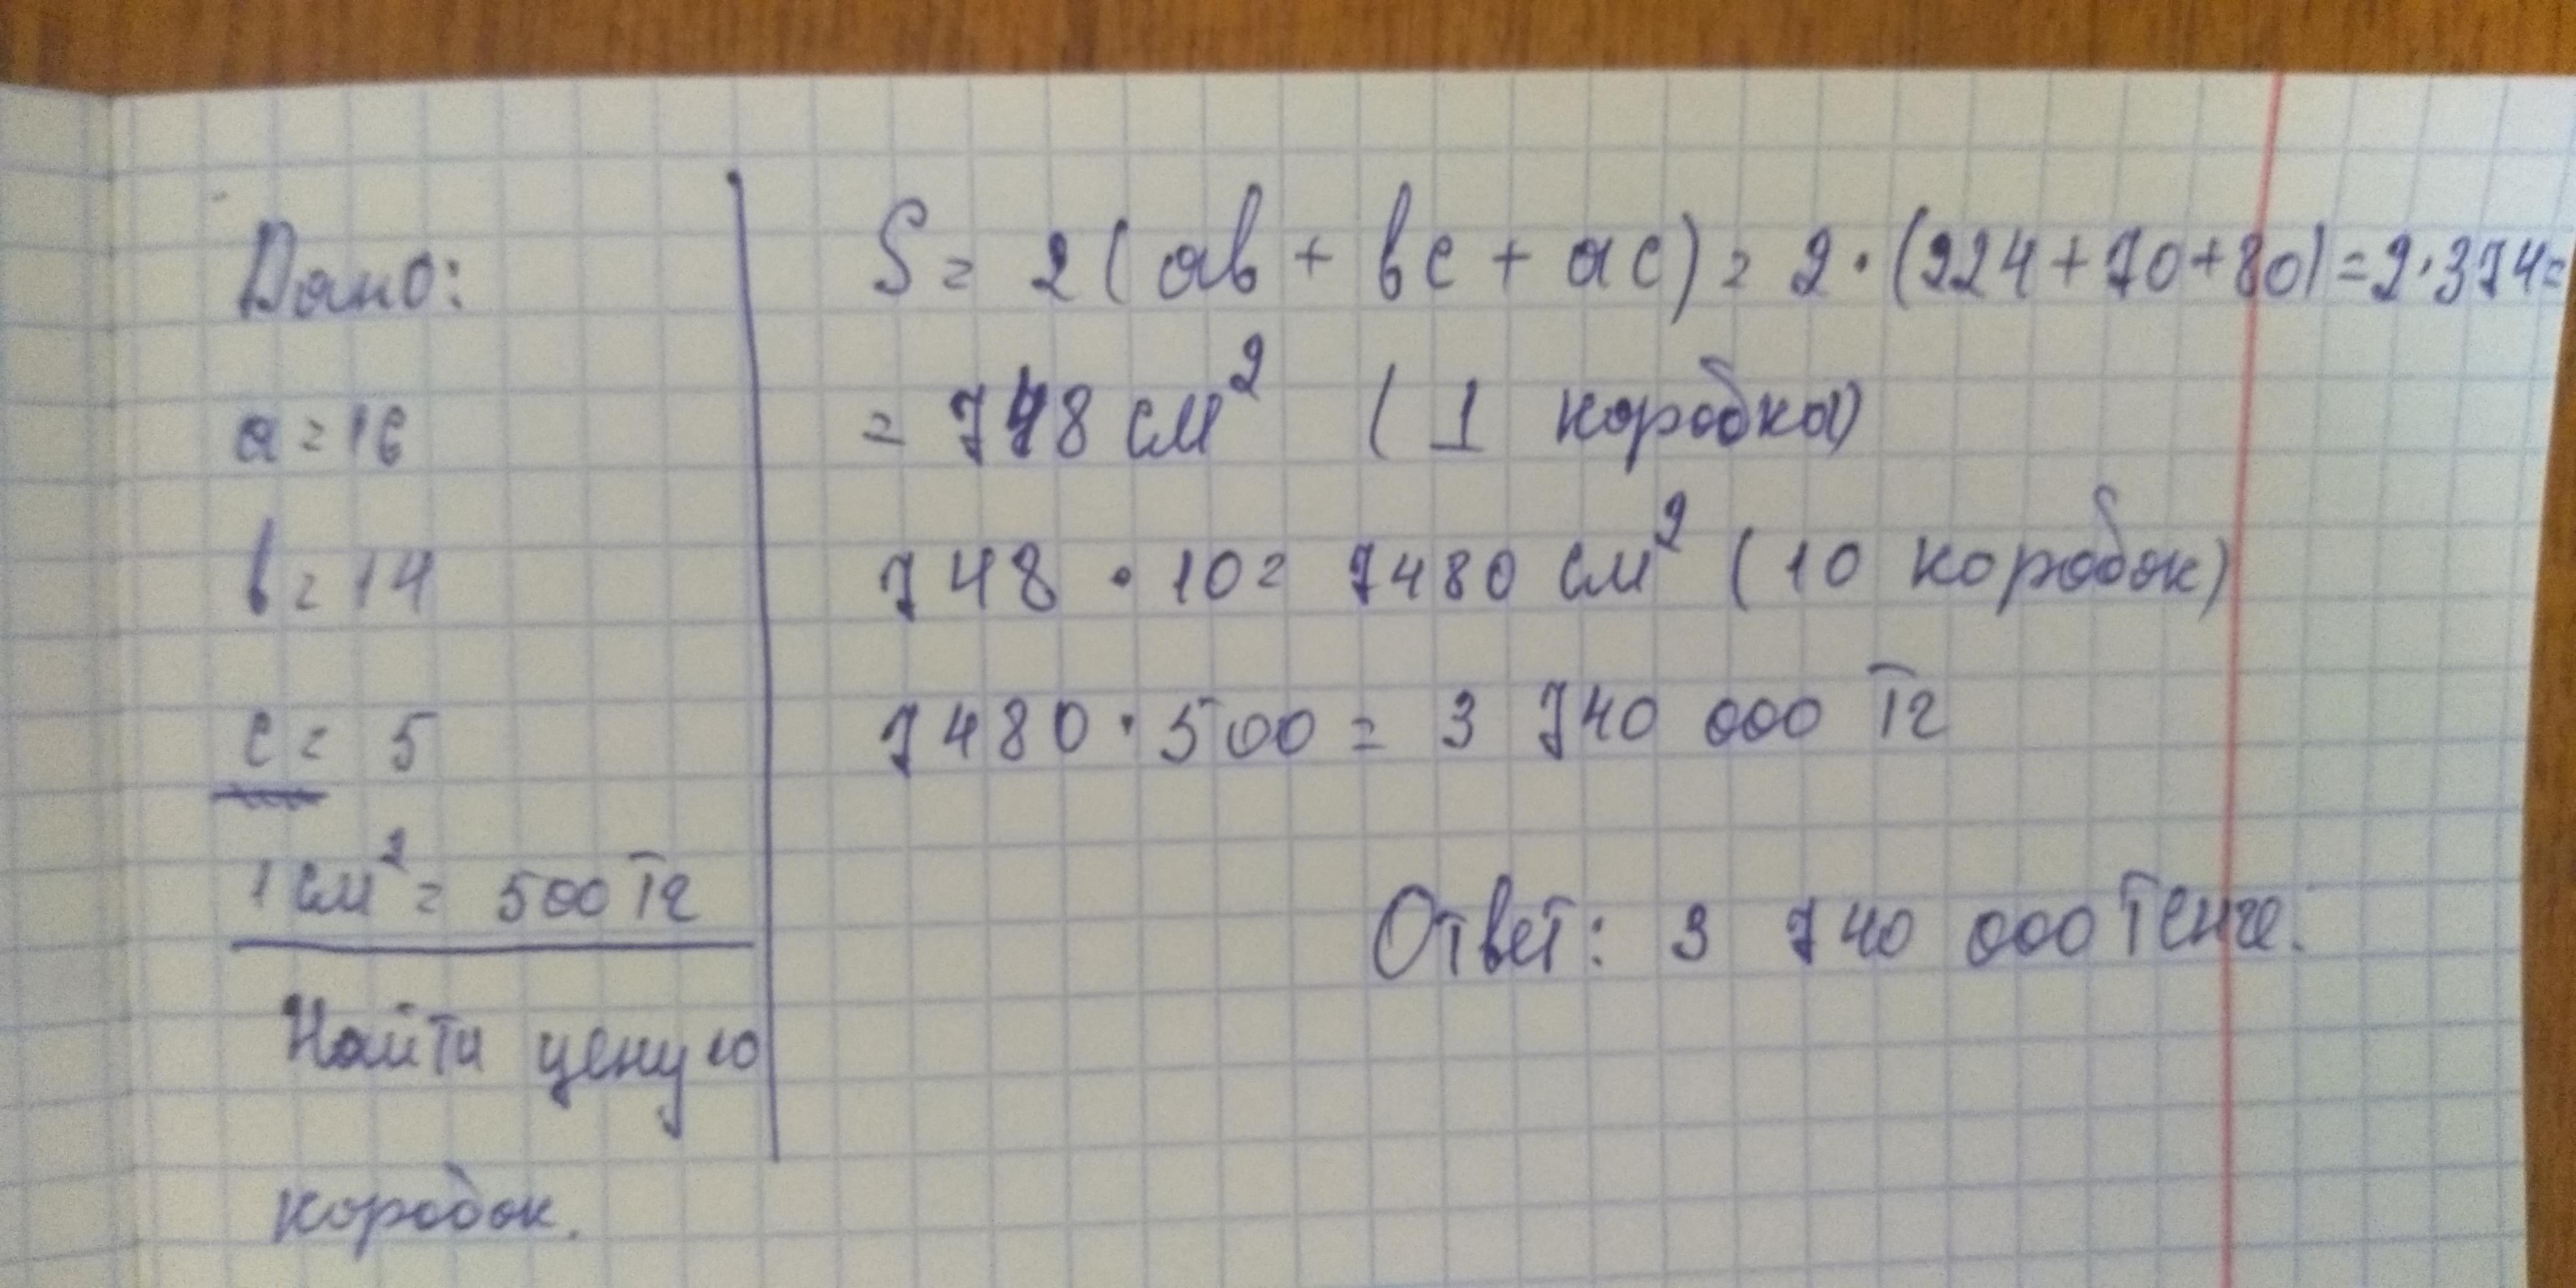 Дано:
a = 16
b = 14
c = 5
1 см² = 500 Тг
Найти цену 10
коробок.
S = 2(ab + bc + ac) = 2·(224+70+80) = 2·374=
= 748 см² (1 коробка)
748 · 10 = 7480 см² (10 коробок)
7480 · 500 = 3 740 000 Тг
Ответ: 3 740 000 Тенге.